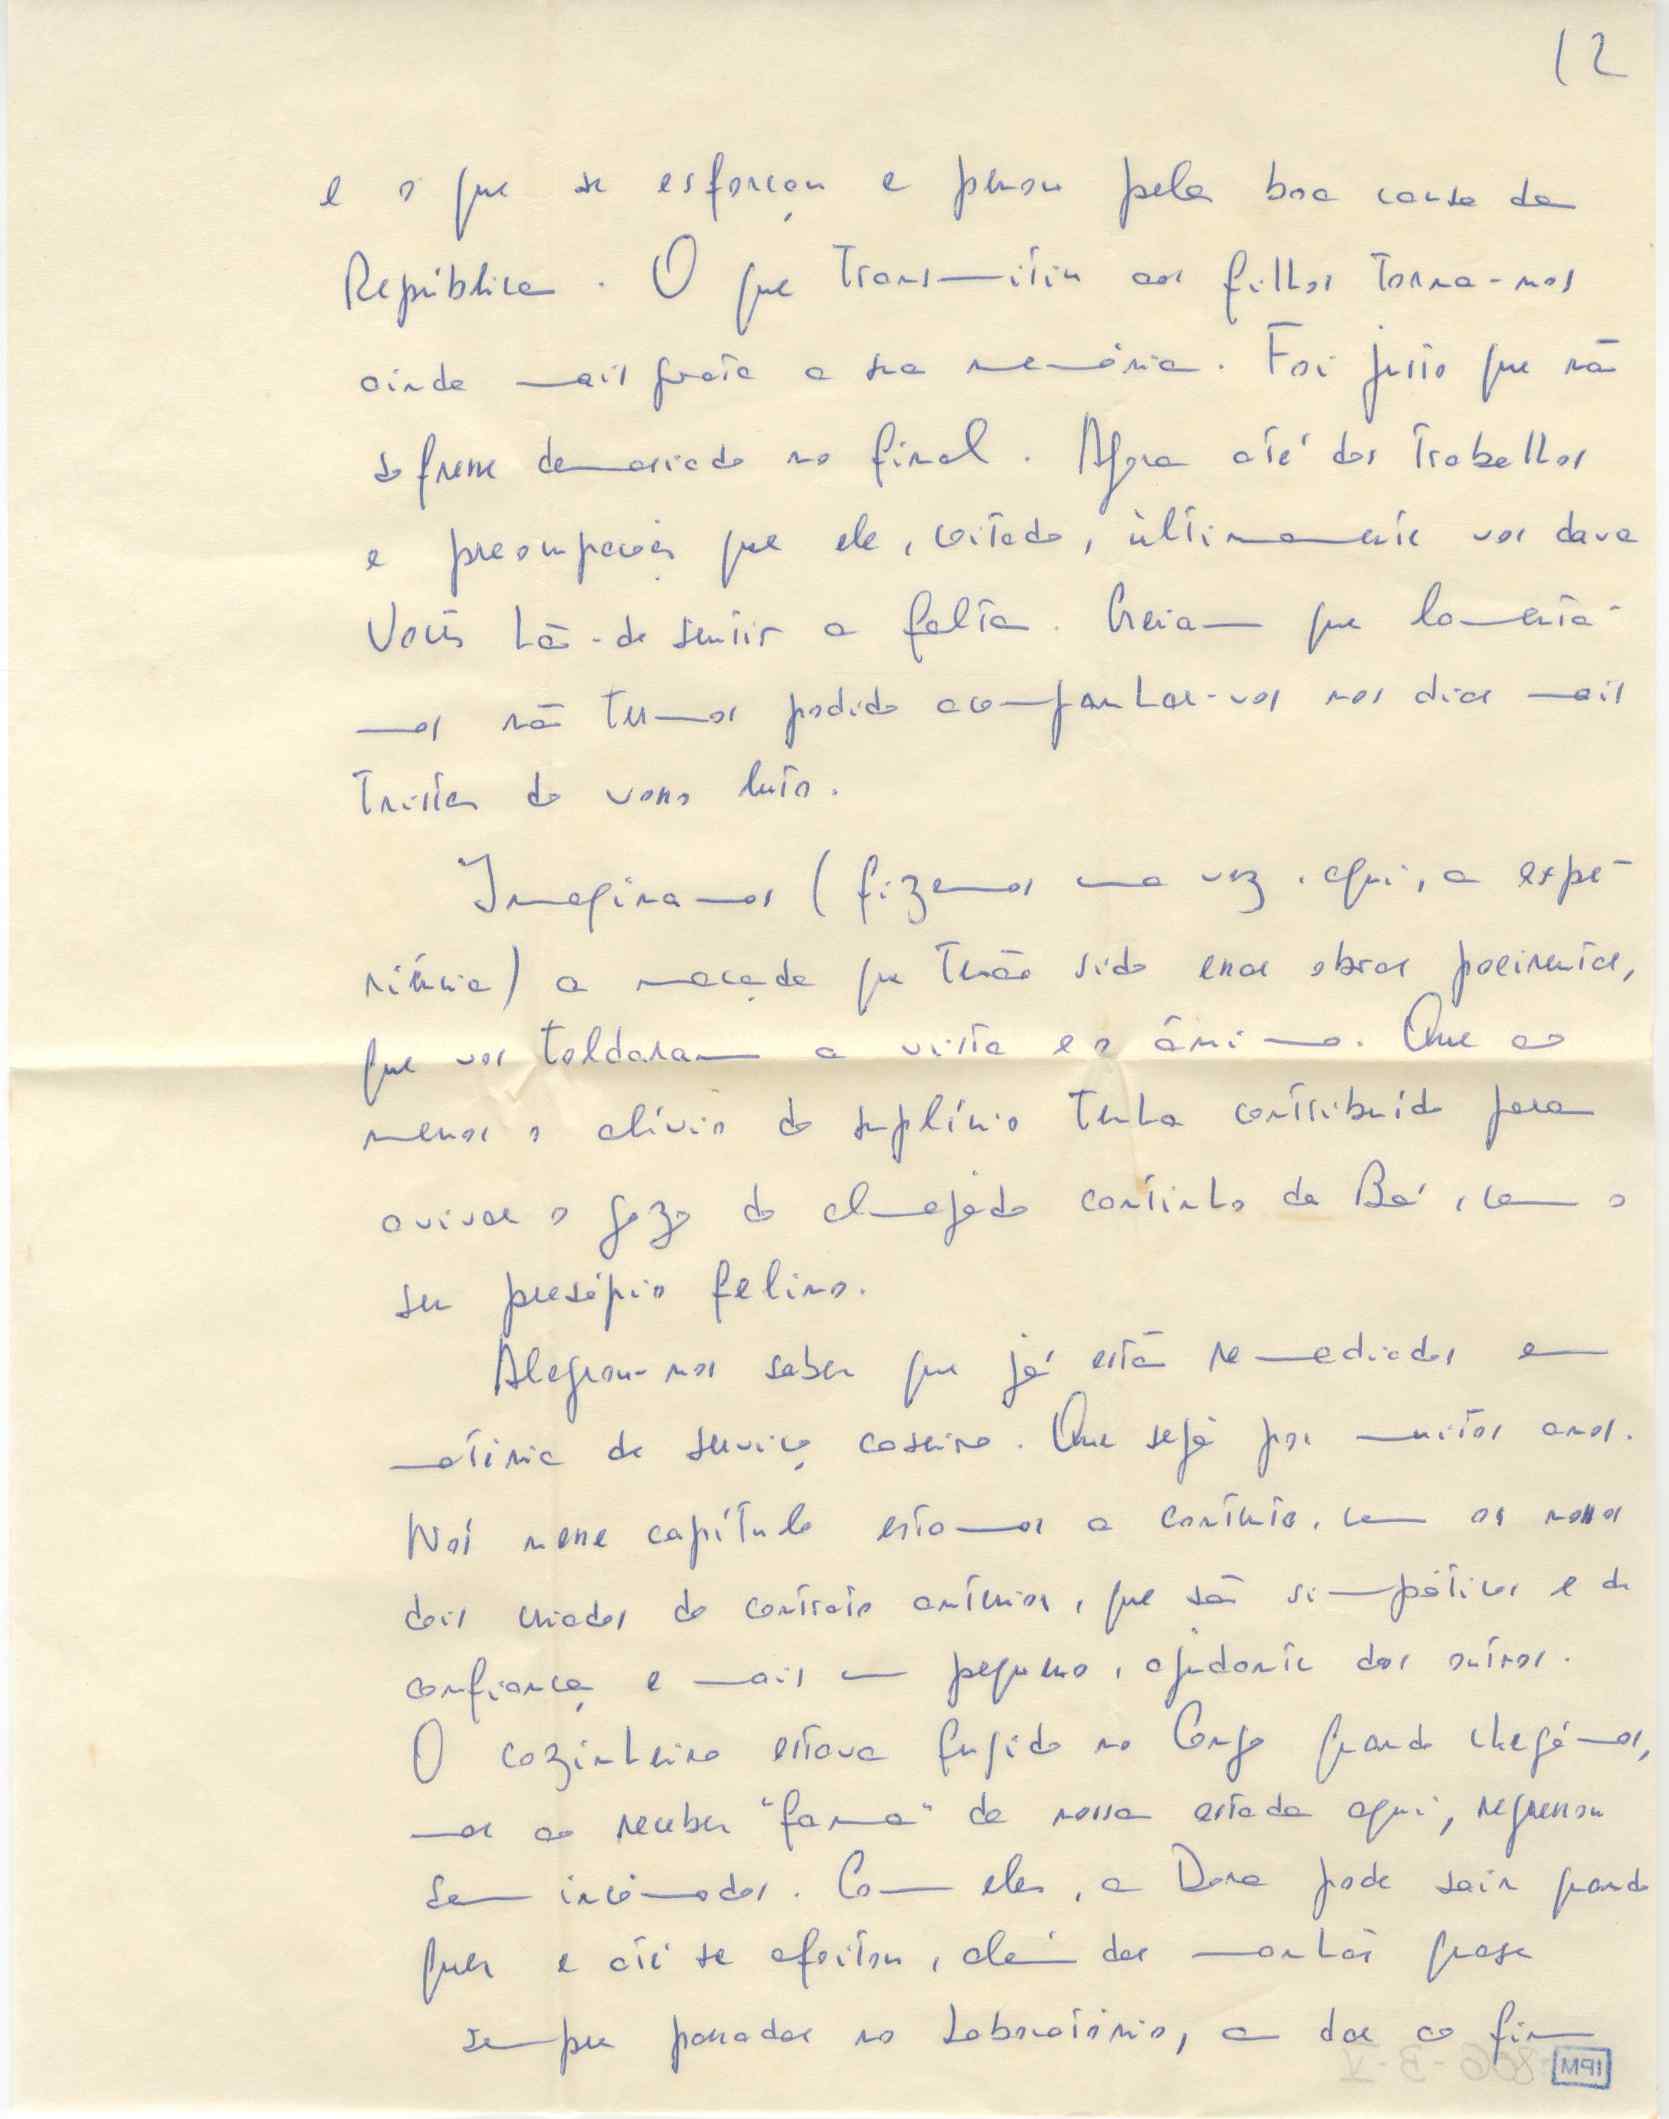 12
e o que se esforçou e penou pela boa causa da
República. O que transmitiu aos filhos torna-nos
ainda mais grata a sua memória. Foi justo que não
sofresse demasiado no final. Agora até dos trabalhos
e preocupações que ele, coitado, ùltimamente vos dava
Vocês hão-de sentir a falta. Creiam que lamentá-
mos não termos podido acompanhar-vos nos dias mais
tristes do vosso luto.
Imaginamos (fizemos uma vez, aqui, a expe-
riência) a maçada que terão sido essas obras poeirentas,
que vos toldaram a vista e o ânimo. Que ao
menos o alívio do suplício tenha contribuído para
avivar o gozo do almejado cantinho da Bá, com o
seu presépio felino.
Alegrou-nos saber que já estão remediados em
matéria de serviço caseiro. Que seja por muitos anos.
Nós nesse capítulo estamos a contento, com os nossos
dois criados do contrato anterior, que são simpáticos e de
confiança e mais um pequeno, ajudante dos outros.
O cozinheiro estava fugido no Congo quando chegámos,
mas ao receber "fama" da nossa estada aqui, regressou
sem incómodos. Com eles, a Dora pode sair quando
quer e até se afoitou, além das manhãs quase
sempre passadas no Laboratório, a dar ao fim
IPM
806-3-V